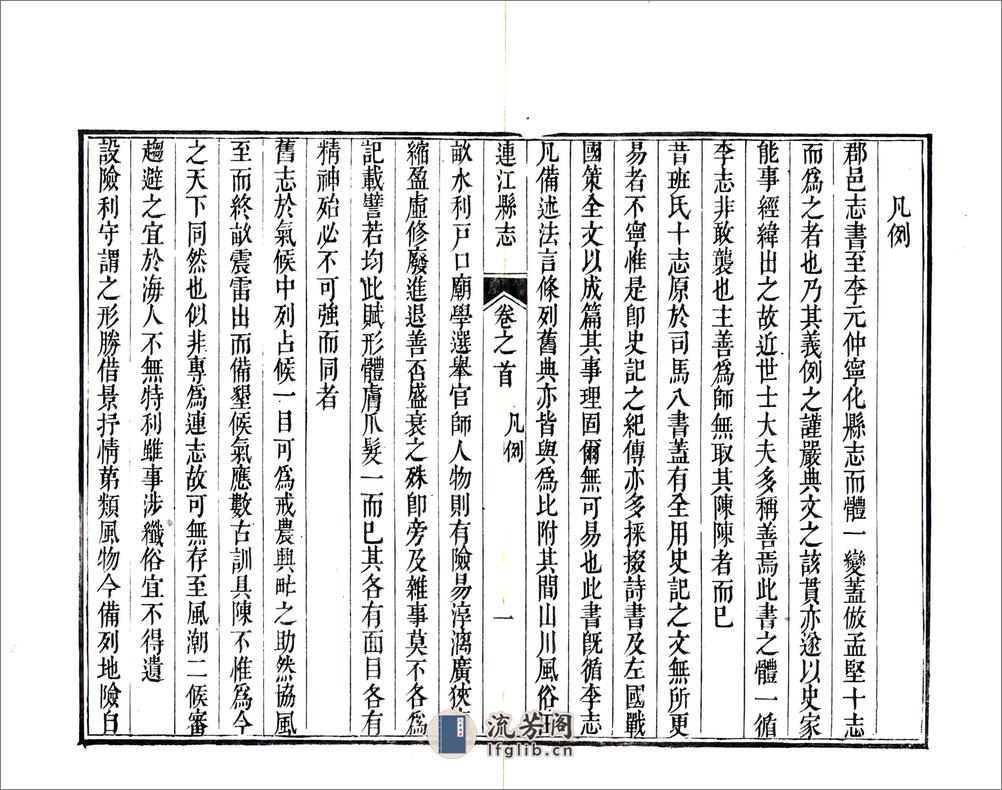 凡例
郡邑志書至李元仲寧化縣志而體一變蓋倣孟堅十志
而爲之者也乃其義例之謹嚴典文之該貫亦遂以史家
能事經緯出之故近世士大夫多稱善焉此書之體一循
李志非敢襲也主善爲師無取其陳陳者而已
昔班氏十志原於司馬八書蓋有全用史記之文無所更
易者不寧惟是卽史記之紀傳亦多採掇詩書及左國戰
國策全文以成篇其事理固爾無可易也此書旣循李志
凡備述法言條列舊典亦皆與爲比附其間山川風俗
連江縣志
卷之首
凡例
一
畝水利戸口廟學選舉官師人物則有險易淳漓廣狹
縮盈虛修廢進退善否盛衰之殊卽旁及雜事莫不各爲
記載譬若均此賦形體膚爪髮一而已其各有面目各有
精神殆必不可強而同者
舊志於氣候中列占候一目可爲戒農興甿之助然協風
至而終畝震雷出而備墾候氣應數古訓具陳不惟爲今
之天下同然也似非專爲連志故可無存至風潮二候審
趨避之宜於海人不無特利雖事涉纖俗宜不得遺
設險利守謂之形勝借景抒情苐類風物今備列地險自
流芳阁
lfglib.cn